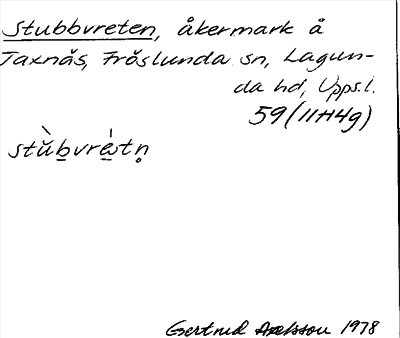 Stubbvreten, åkermark å
Taxnäs, Fröslunda sn, Lagun-
da hd, Upps. l.
59 (11H4g)
stu̇̀b̲vrè̲stn̥
Gertrud Axelsson 1978